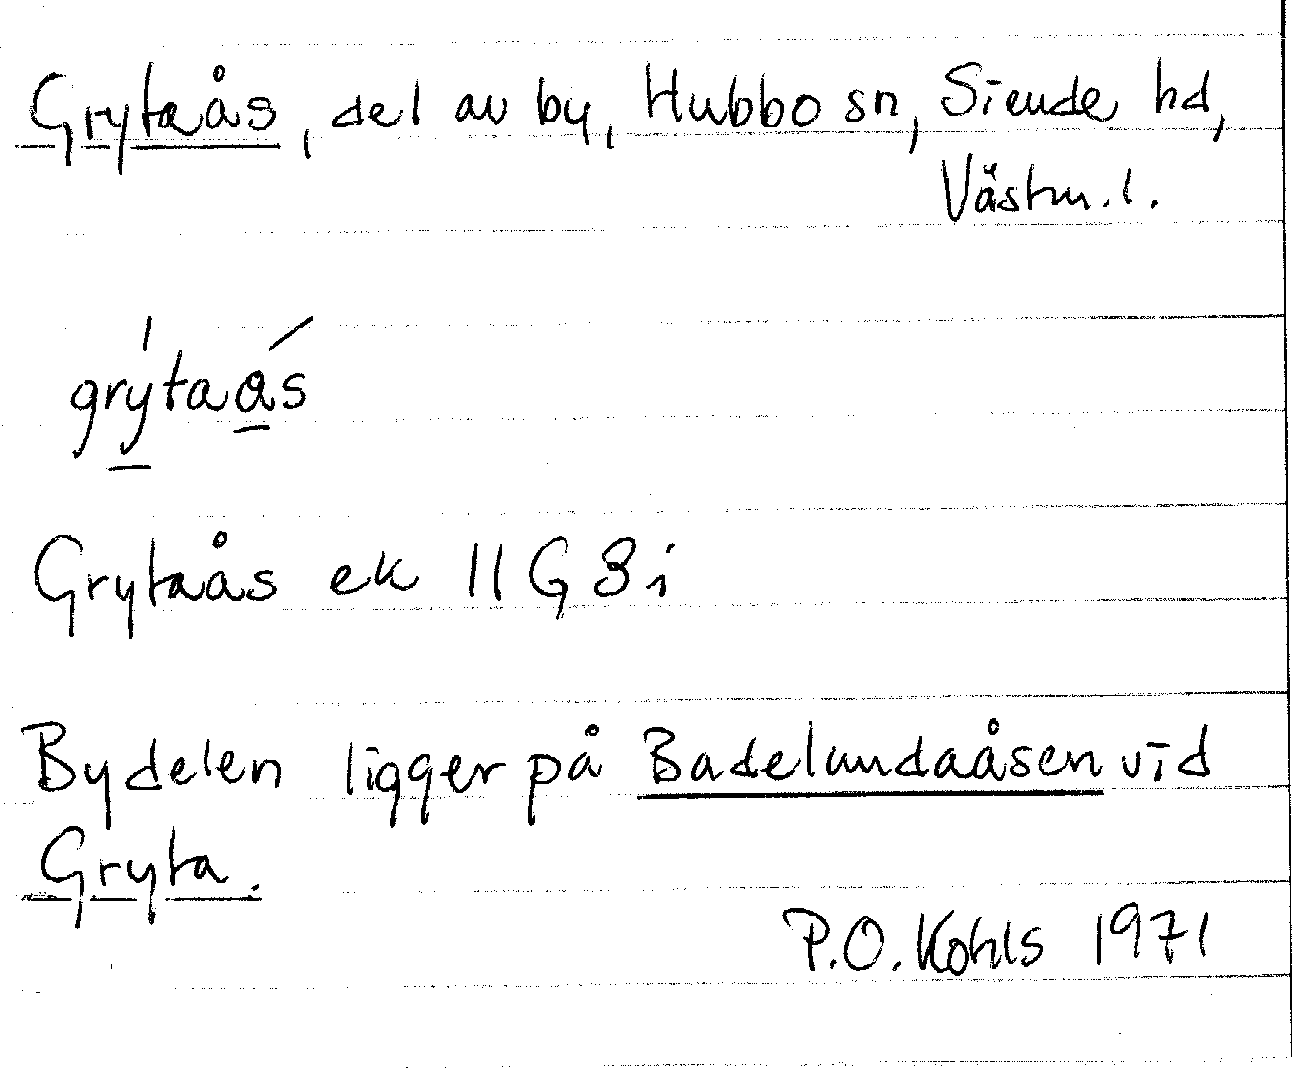 Grytaås, del av by, Hubbo sn, Siende hd,
Västm. l.
grýtaás
Grytaås ek 11 G 8 i
Bydelen ligger på Badelundaåsen vid
Gryta.
P.O. Kohls 1971